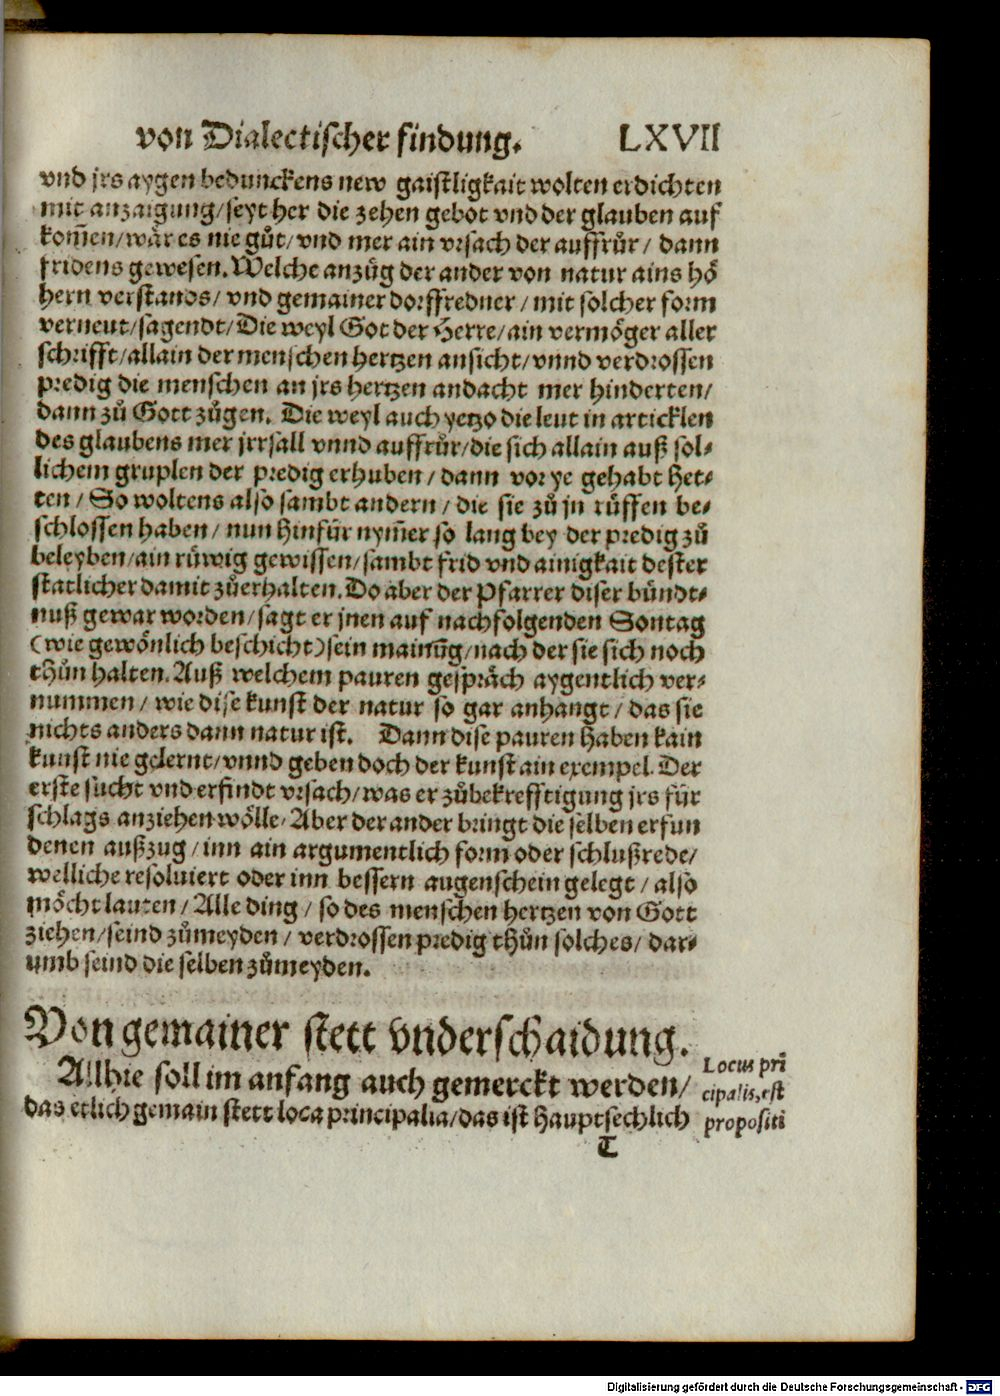 von Dialectischer findung. LXVII
vnd jrs aygen bedunckens new gaistligkait wolten erdichten
mit anzaigung/seyt her die zehen gebot vnd der glauben auf
kom̃en/wår es nie gůt/vnd mer ain vrsach der auffrůr/ dann
fridens gewesen. Welche anzůg der ander von natur ains hö
hern verstands/ vnd gemainer dorffredner/ mit solcher form
verneut/sagendt/Die weyl Got der Herre/ain vermöger aller
schrifft/allain der menschen hertzen ansicht/vnnd verdrossen
predig die menschen an jrs hertzen andacht mer hinderten/
dann zů Gott zůgen. Die weyl auch yetzo die leut in articklen
des glaubens mer jrrsall vnnd auffrůr/die sich allain auß sol-
lichem gruplen der predig erhuben/ dann vor ye gehabt het-
ten/ So woltens also sambt andern/ die sie zů jn růffen be-
schlossen haben/ nun hinfür nym̃er so lang bey der predig zů
beleyben/ain růwig gewissen/sambt frid vnd ainigkait dester
statlicher damit zůerhalten. Do aber der Pfarrer diser bündt-
nuß gewar worden/sagt er jnen auf nachfolgenden Sontag
(wie gewönlich beschicht) sein mainūg/nach der sie sich noch
thůn halten. Auß welchem pauren gespräch aygentlich ver-
nummen/ wie dise kunst der natur so gar anhangt/ das sie
nichts anders dann natur ist. Dann dise pauren haben kain
kunst nie gelernt/vnnd geben doch der kunst ain exempel. Der
erste sucht vnd erfindt vrsach/was er zůbekrefftigung jrs für
schlags anziehen wölle/ Aber der ander bringt die selben erfun
denen außzug/inn ain argumentlich form oder schlußrede/
welliche resoluiert oder inn bessern augenschein gelegt/ also
möcht lauten/ Alle ding/ so des menschen hertzen von Gott
ziehen/seind zůmeyden/ verdrossen predig thůn solches/ dar-
umb seind die selben zůmeyden.
Von gemainer stett vnderschaidung.
Allhie soll im anfang auch gemerckt werden/
das etlich gemain stett loca principalia/das ist hauptsechlich
Locus prī
cipalis, est
propositi
T
Digitalisierung gefördert durch die Deutsche Forschungsgemeinschaft - DFG